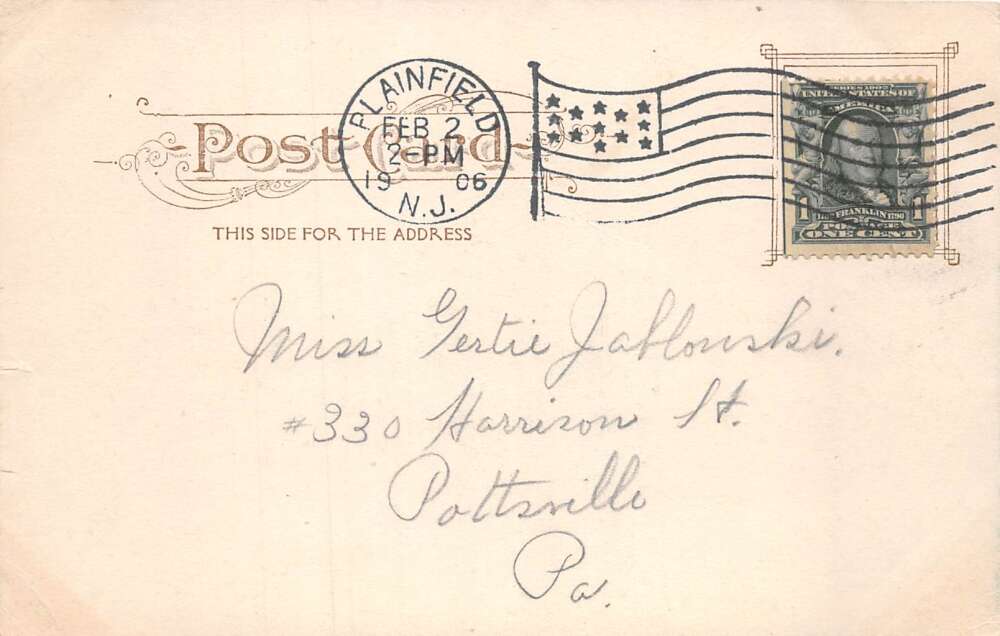 Post Card
PLAINFIELD
FEB 2
2-PM
19 06
N.J.
SERIES 1902
UNITED STATES OF
AMERICA
1 1
1706 FRANKLIN 1790
POSTAGE
ONE CENT
THIS SIDE FOR THE ADDRESS
Miss Gertie Jablouski.
#330 Harrison St.
Pottsville
Pa.